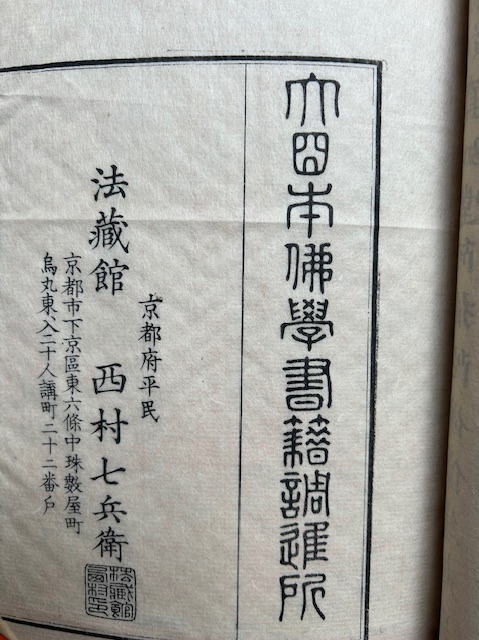 大日本佛學書籍調進所
京都府平民
法藏館 西村七兵衛
京都市下京區東六條中珠數屋町
烏丸東入二十人講町二十二番戶